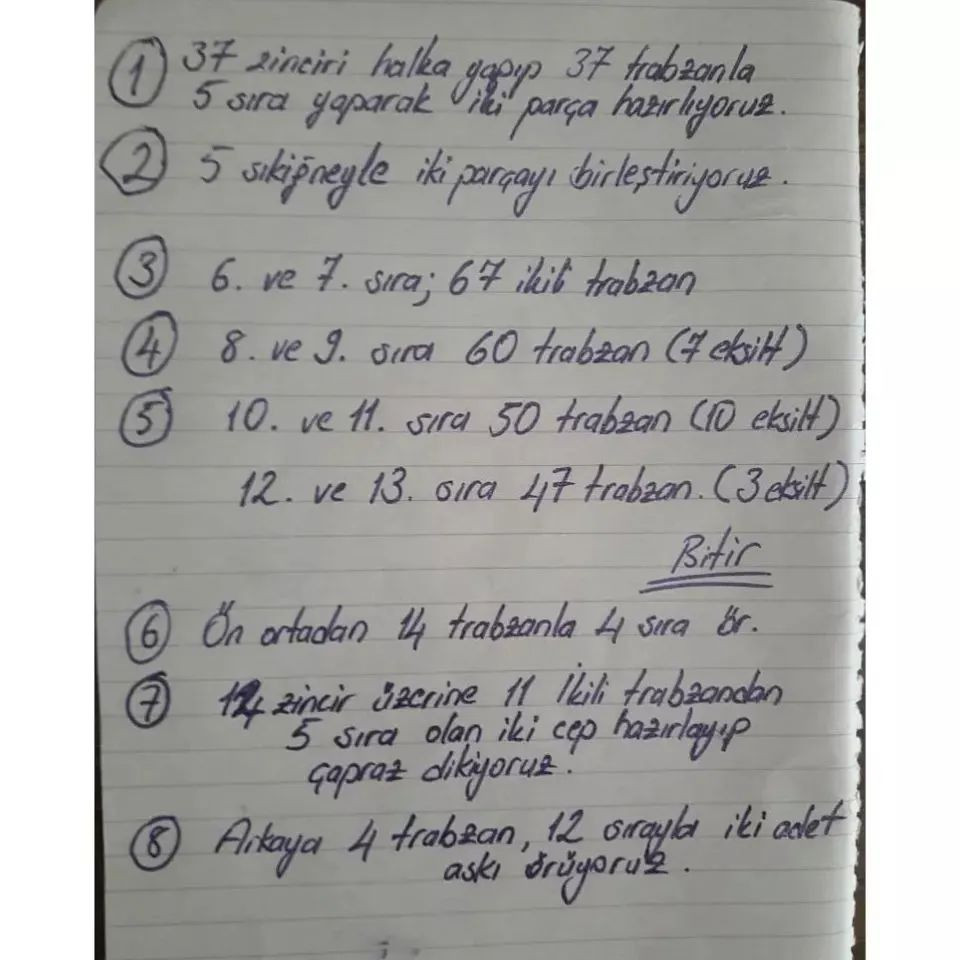 1 37 zinciri halka yapıp 37 trabzanla
5 sıra yaparak iki parça hazırlıyoruz.
2 5 sıkiğneyle iki parçayı birleştiriyoruz.
3 6. ve 7. sıra; 67 ikili trabzan
4 8. ve 9. sıra 60 trabzan (7 eksilt)
5 10. ve 11. sıra 50 trabzan (10 eksilt)
12. ve 13. sıra 47 trabzan. (3 eksilt)
Bitir
6 Ön ortadan 14 trabzanla 4 sıra ör.
7 14 zincir üzerine 11 İkili trabzandan
5 sıra olan iki cep hazırlayıp
çapraz dikiyoruz.
8 Arkaya 4 trabzan, 12 sırayla iki adet
askı örüyoruz.